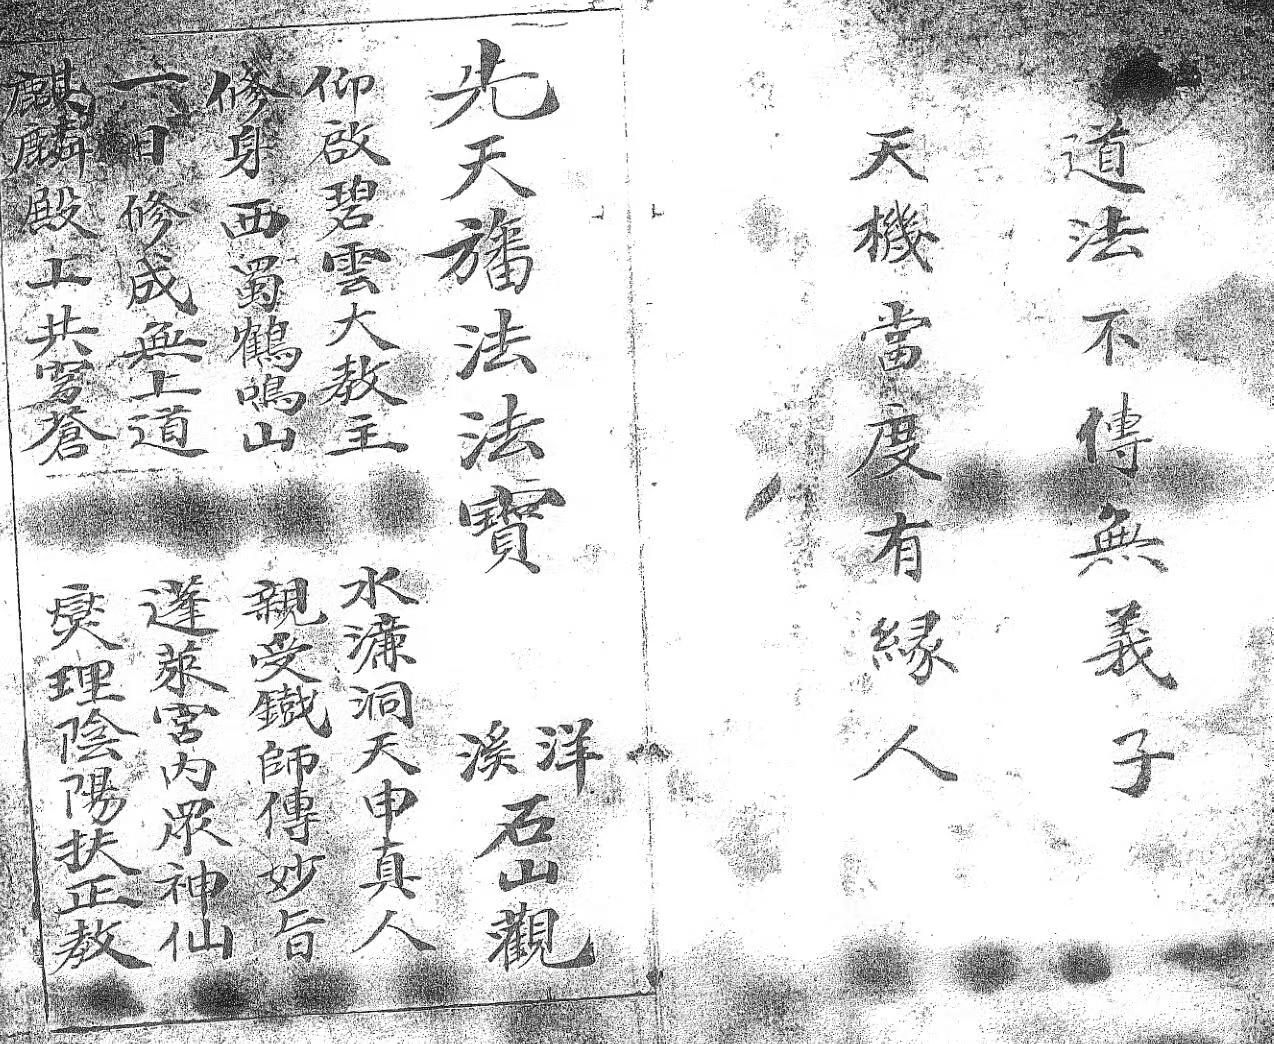 道法不傳無義子
天機當度有緣人
先天旛法法寶
洋溪石山觀
仰啟碧雲大教主
水濂洞天申真人
修身西蜀鶴鳴山
親受鐵師傳妙旨
一日修成無上道
蓬萊宮內眾神仙
麒麟殿上共穹蒼
燮理陰陽扶正教